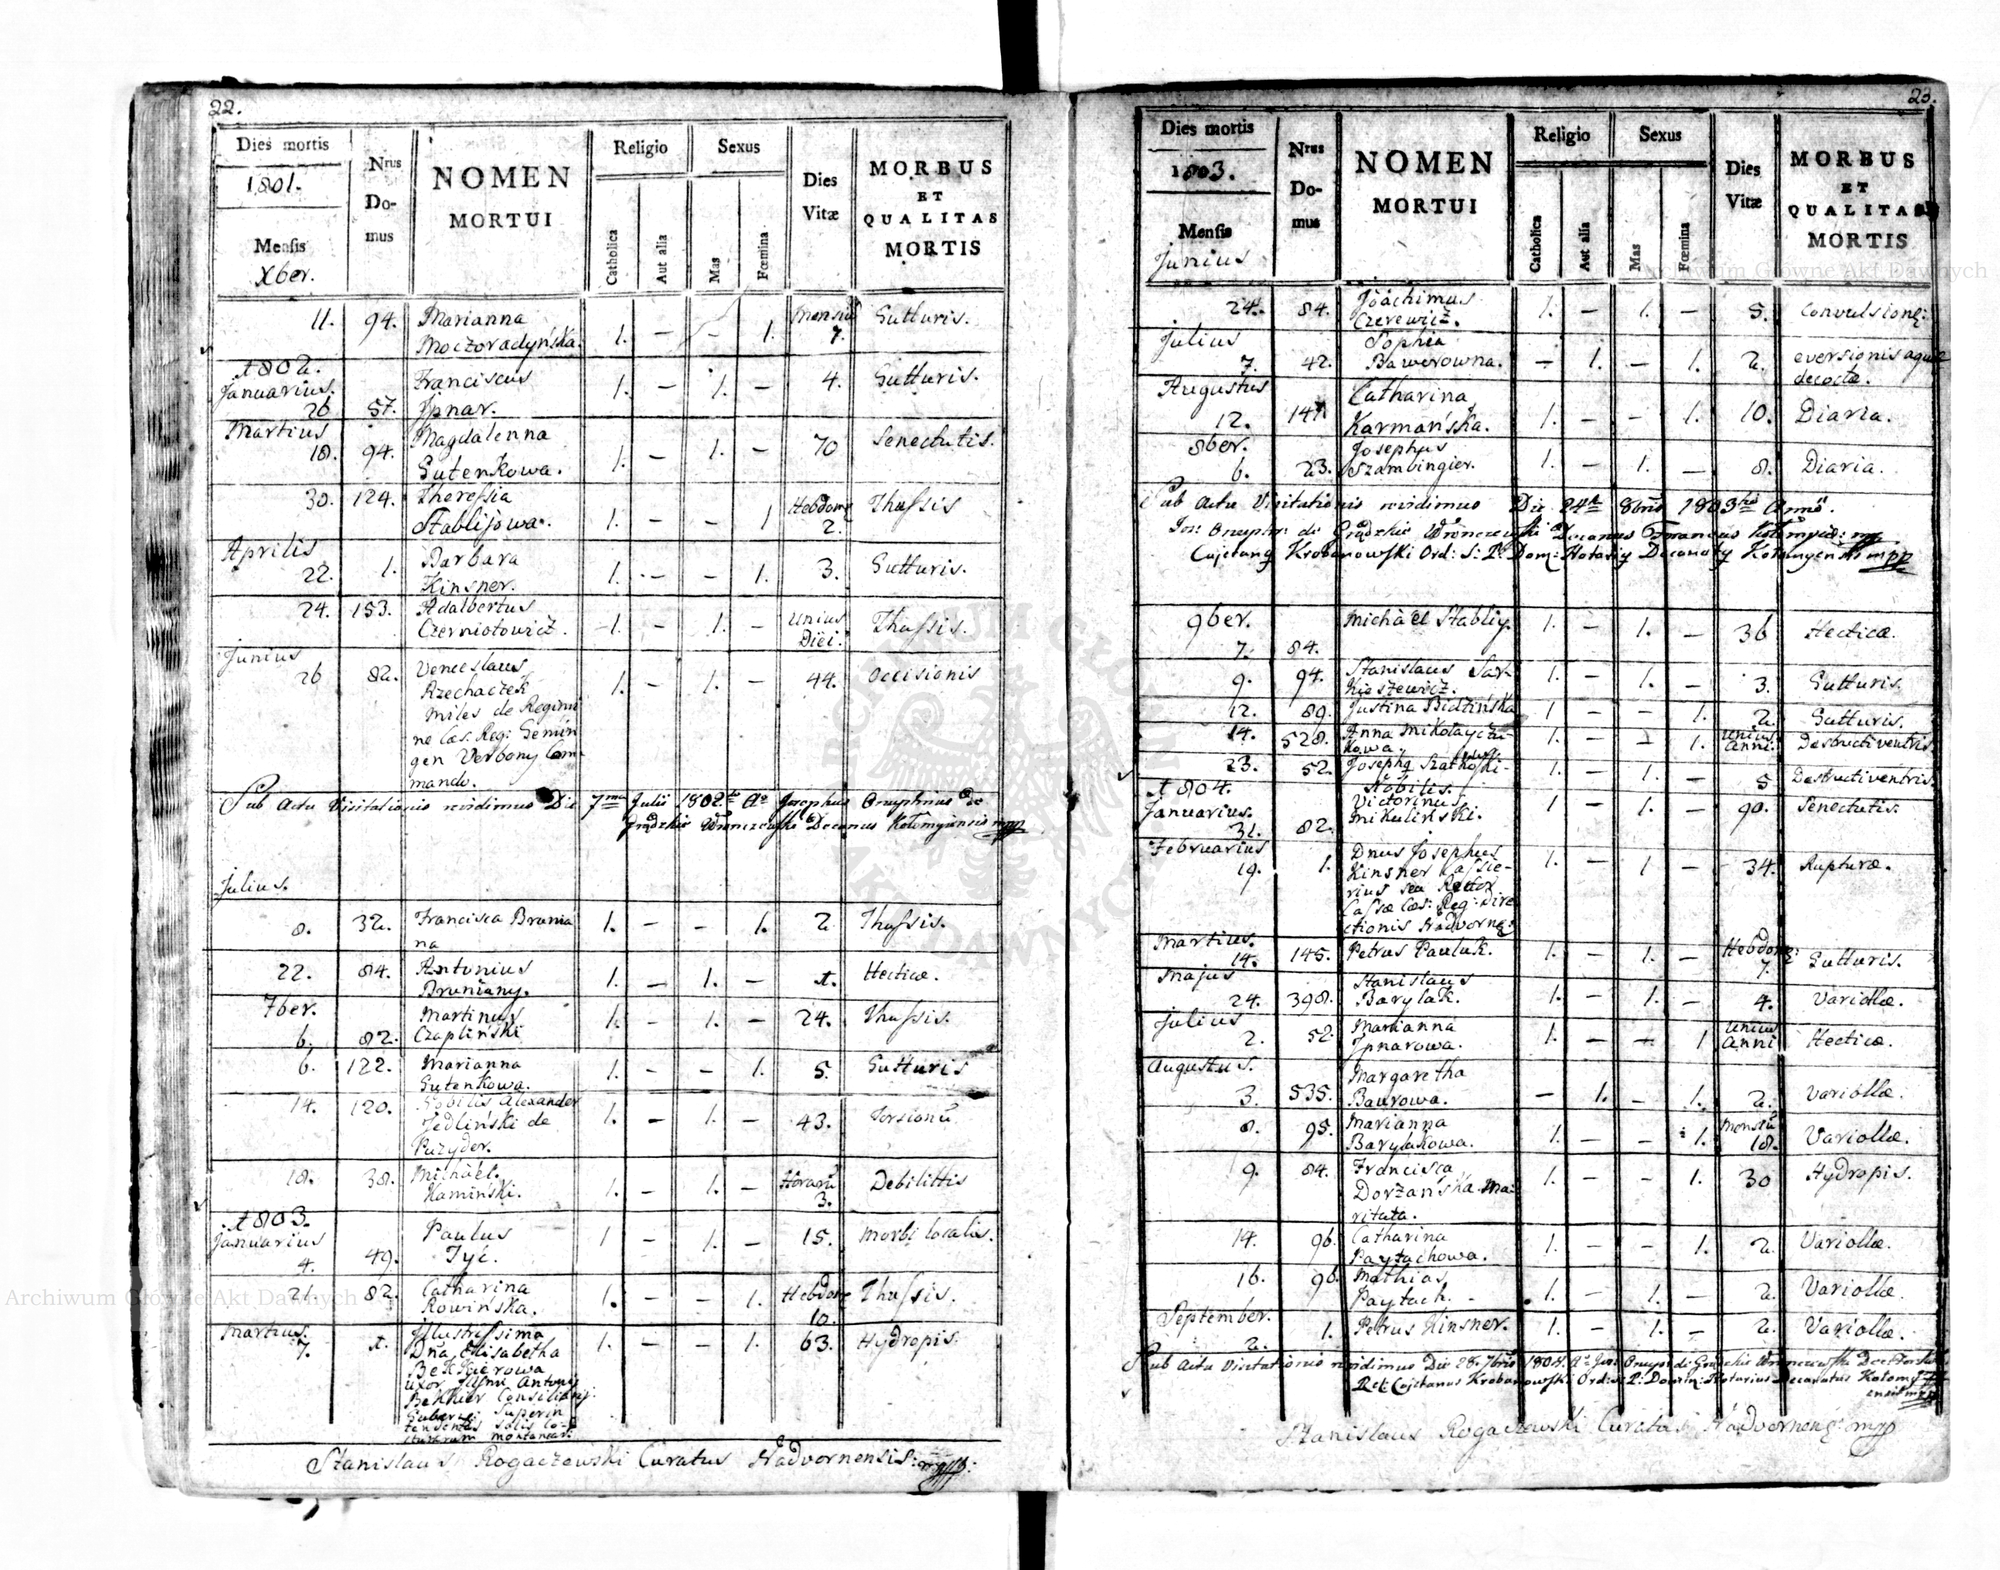 22.
Dies mortis
1801.
Mensis
Xber.
Nrus
Do-
mus
NOMEN
MORTUI
Religio
Catholica
Aut alia
Sexus
Mas
Fœmina
Dies
Vitæ
MORBUS
ET
QUALITAS
MORTIS
11. 94. Marianna
Moczoradyńska. 1. — — 1. Mensiu 7. Gutturis.
1802.
Januarius.
26 57. Franciscus
Jpnar. 1. — 1. — 4. Gutturis.
Martius
18. 94. Magdalenna
Gutenkowa. 1. — 1. — 70 Senectutis.
30. 124. Theressia
Stablijowa. 1. — — 1 Hebdom: 2. Thussis
Aprilis
22. 1. Barbara
Kinsner. 1. — — 1. 3. Gutturis.
24. 153. Adalbertus
Czerniotowicz. 1. — 1. — Unius
Diei. Thussis.
Junius
26 82. Venceslaus
Rzechaczek
miles de Regimi
ne Cæs: Reg: Gemin
gen Verbony Com
mando. 1. — 1. — 44. Occisionis
Sub Actu Visitationis vidimus Die 7ma Julii 1802do Ao Josephus Onuphrius de
Grądzkie Wronczewski Decanus Kołomyiensis mpp
Julius.
8. 32. Francisca Brunia
na 1. — — 1. 2 Thussis.
22. 84. Antonius
Bruniany. 1. — 1. — 1. Hecticæ.
7ber.
6. 82. Martinus
Czapliński 1. — 1. — 24. Thussis.
6. 122. Marianna
Gutenkowa. 1. — — 1. 5. Gutturis
14. 120. Nobilis Alexander
Jedliński de
Pażyder. 1. — 1. — 43. Torsionũ
18. 38. Michäel.
Kamiński. 1. — 1. — Horarũ
3. Debilittis
1803.
Januarius
4. 49. Paulus
Tyc. 1 — 1. — 15. Morbi localis.
21. 82. Catharina
Rowińska. 1. — — 1. Hebdom:
10. Thussis.
Martius.
7. 1. Illustrissima
Dña Elisabetha
Bekkierowa
uxor Illsmi Antony
Bekkier Consiliary
Gubern: Superin
tendentis Salis Co-
cturarum montanear: 1. — — 1. 63. Hydropis.
Stanislaus Rogaczewski Curatus Nadvornensis: mpp:
23.
Dies mortis
1803.
Mensis
Junius
Nrus
Do-
mus
NOMEN
MORTUI
Religio
Catholica
Aut alia
Sexus
Mas
Fœmina
Dies
Vitæ
MORBUS
ET
QUALITAS
MORTIS
24. 84. Joachimus
Czerewicz. 1. — 1. — 5. Convulsionę:
Julius
7. 42. Sophia
Bawerowna. — 1. — 1. 2. eversionis aquæ
decoctæ.
Augustus
12. 141. Catharina
Karmańska. 1. — — 1. 10. Diaria.
8ber.
6. 23. Josephus
Szambingier. 1. — 1. — 8. Diaria.
Sub Actu Visitationis vidimus Die 24ta 8bris 1803tio Anno.
Jos: Onuphr: de Grądzkie Wronczewski Decanus Foraneus Kołomyien: mp
Cajetanq Krobanowski Ord: S: P: Dom: Notariq Decanatq Kołomyensis mpp
9ber.
7. 84. Michäel Stabliy. 1. — 1. — 36 Hecticæ.
9. 94. Stanislaus Sar-
kiszewicz. 1. — 1. — 3. Gutturis.
12. 89. Justina Bidzińska 1 — — 1. 2. Gutturis.
14. 528. Anna Mikołayczu-
kowa. 1. — — 1. Unius
Anni. Destructi ventris.
23. 52. Josephq Szatkowski
Nobilis. 1. — 1. — 5 Destructi ventris.
1804.
Januarius.
31. 82. Victorinus
Mikuliński. 1 — 1. — 90. Senectutis.
Februarius
19. 1. Dnus Josephus
Kinsner Cassie-
rius seu Rector
Cassæ Cæs: Reg: dire
ctionis Nadvornę: 1. — 1 — 34. Rupturæ.
Martius.
14. 145. Petrus Pauluk. 1. — 1. — Hebdom:
7. Gutturis.
Majus
24. 398. Stanislaus
Barylak. 1. — 1. — 4. Variollæ.
Julius
2. 52. Marianna
Jpnarowa. 1. — — 1 Unius
Anni Hecticæ.
Augustus.
3. 535. Margaretha
Baurowa. — 1. — 1. 2. Variollæ.
8. 95. Marianna
Barylakowa. 1. — — 1. Mensiũ
18. Variollæ.
9. 84. Francisca
Dorżańska Ma-
ritata. 1. — — 1. 30 Hydropis.
14. 96. Catharina
Paytachowa. 1. — — 1. 2. Variollæ.
16. 96. Mathias
Paytach. 1. — 1. — 2. Variollæ.
September.
2. 1. Petrus Kinsner. 1. — 1. — 2. Variollæ.
Sub Actu Visitationis vidimus Die 28. 7bris 1804. Ao Jos: Onuph: de Grądzkie Wronczewski
Cajetanus Krobanowski Ord: S: P: Domin: Notarius Decanatus Kołomy
ensis mpp
Stanislaus Rogaczewski Curatus Nadvornenę: mpp
Archiwum Główne Akt Dawnych
Archiwum Główne Akt Dawnych
ARCHIWUM GŁÓWNE
AKT DAWNYCH